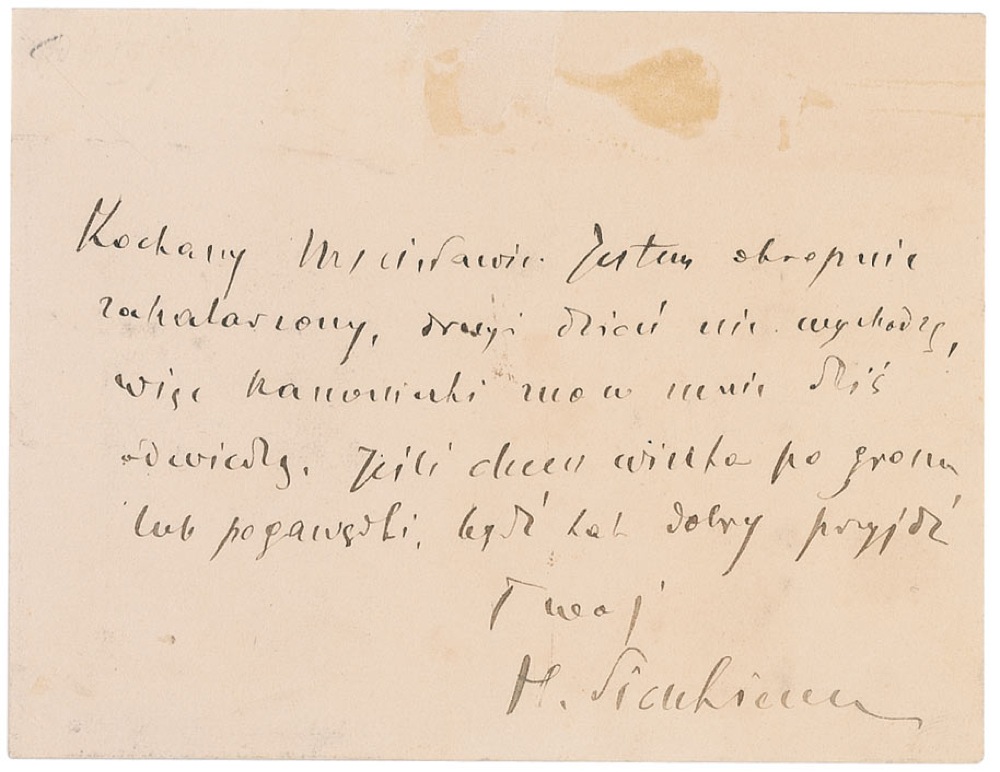 Kochany Mścisławie. Jestem okropnie
zakatarzony, drugi dzień nie wychodzę,
więc Kanoniczki mnie dziś
odwiedzą. Jeśli chcesz winta po groszu
lub pogawędki, bądź tak dobry przyjdź
Twoj
H. Sienkiewicz